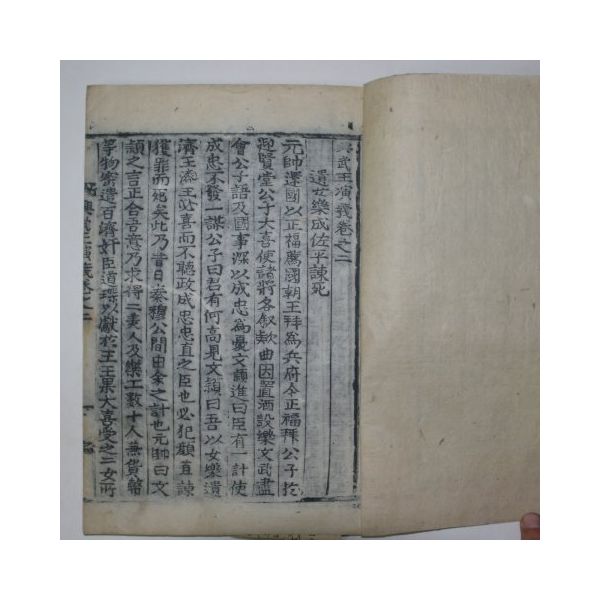 武王演義卷之二
遺女樂成佐平諫死
元帥還國以正福薦國朝王拜為兵府令正福拜公子於
迎賢堂公子大喜使諸將各叙款曲因置酒設樂文武盡
會公子語及國事深以成忠為憂文頴進曰臣有一計使
成忠不發一謀公子曰君有何高見文頴曰吾以女樂遺
濟王濟王必喜而不聽政成忠忠直之臣也必犯顔直諫
獲罪而死矣此乃昔日秦穆公間由余之計也元帥曰文
頴之言正合吾意乃求得二美人及樂工數十人兼貨賂
等物密遣百濟奸臣道琛以獻於王王果大喜受之二女所